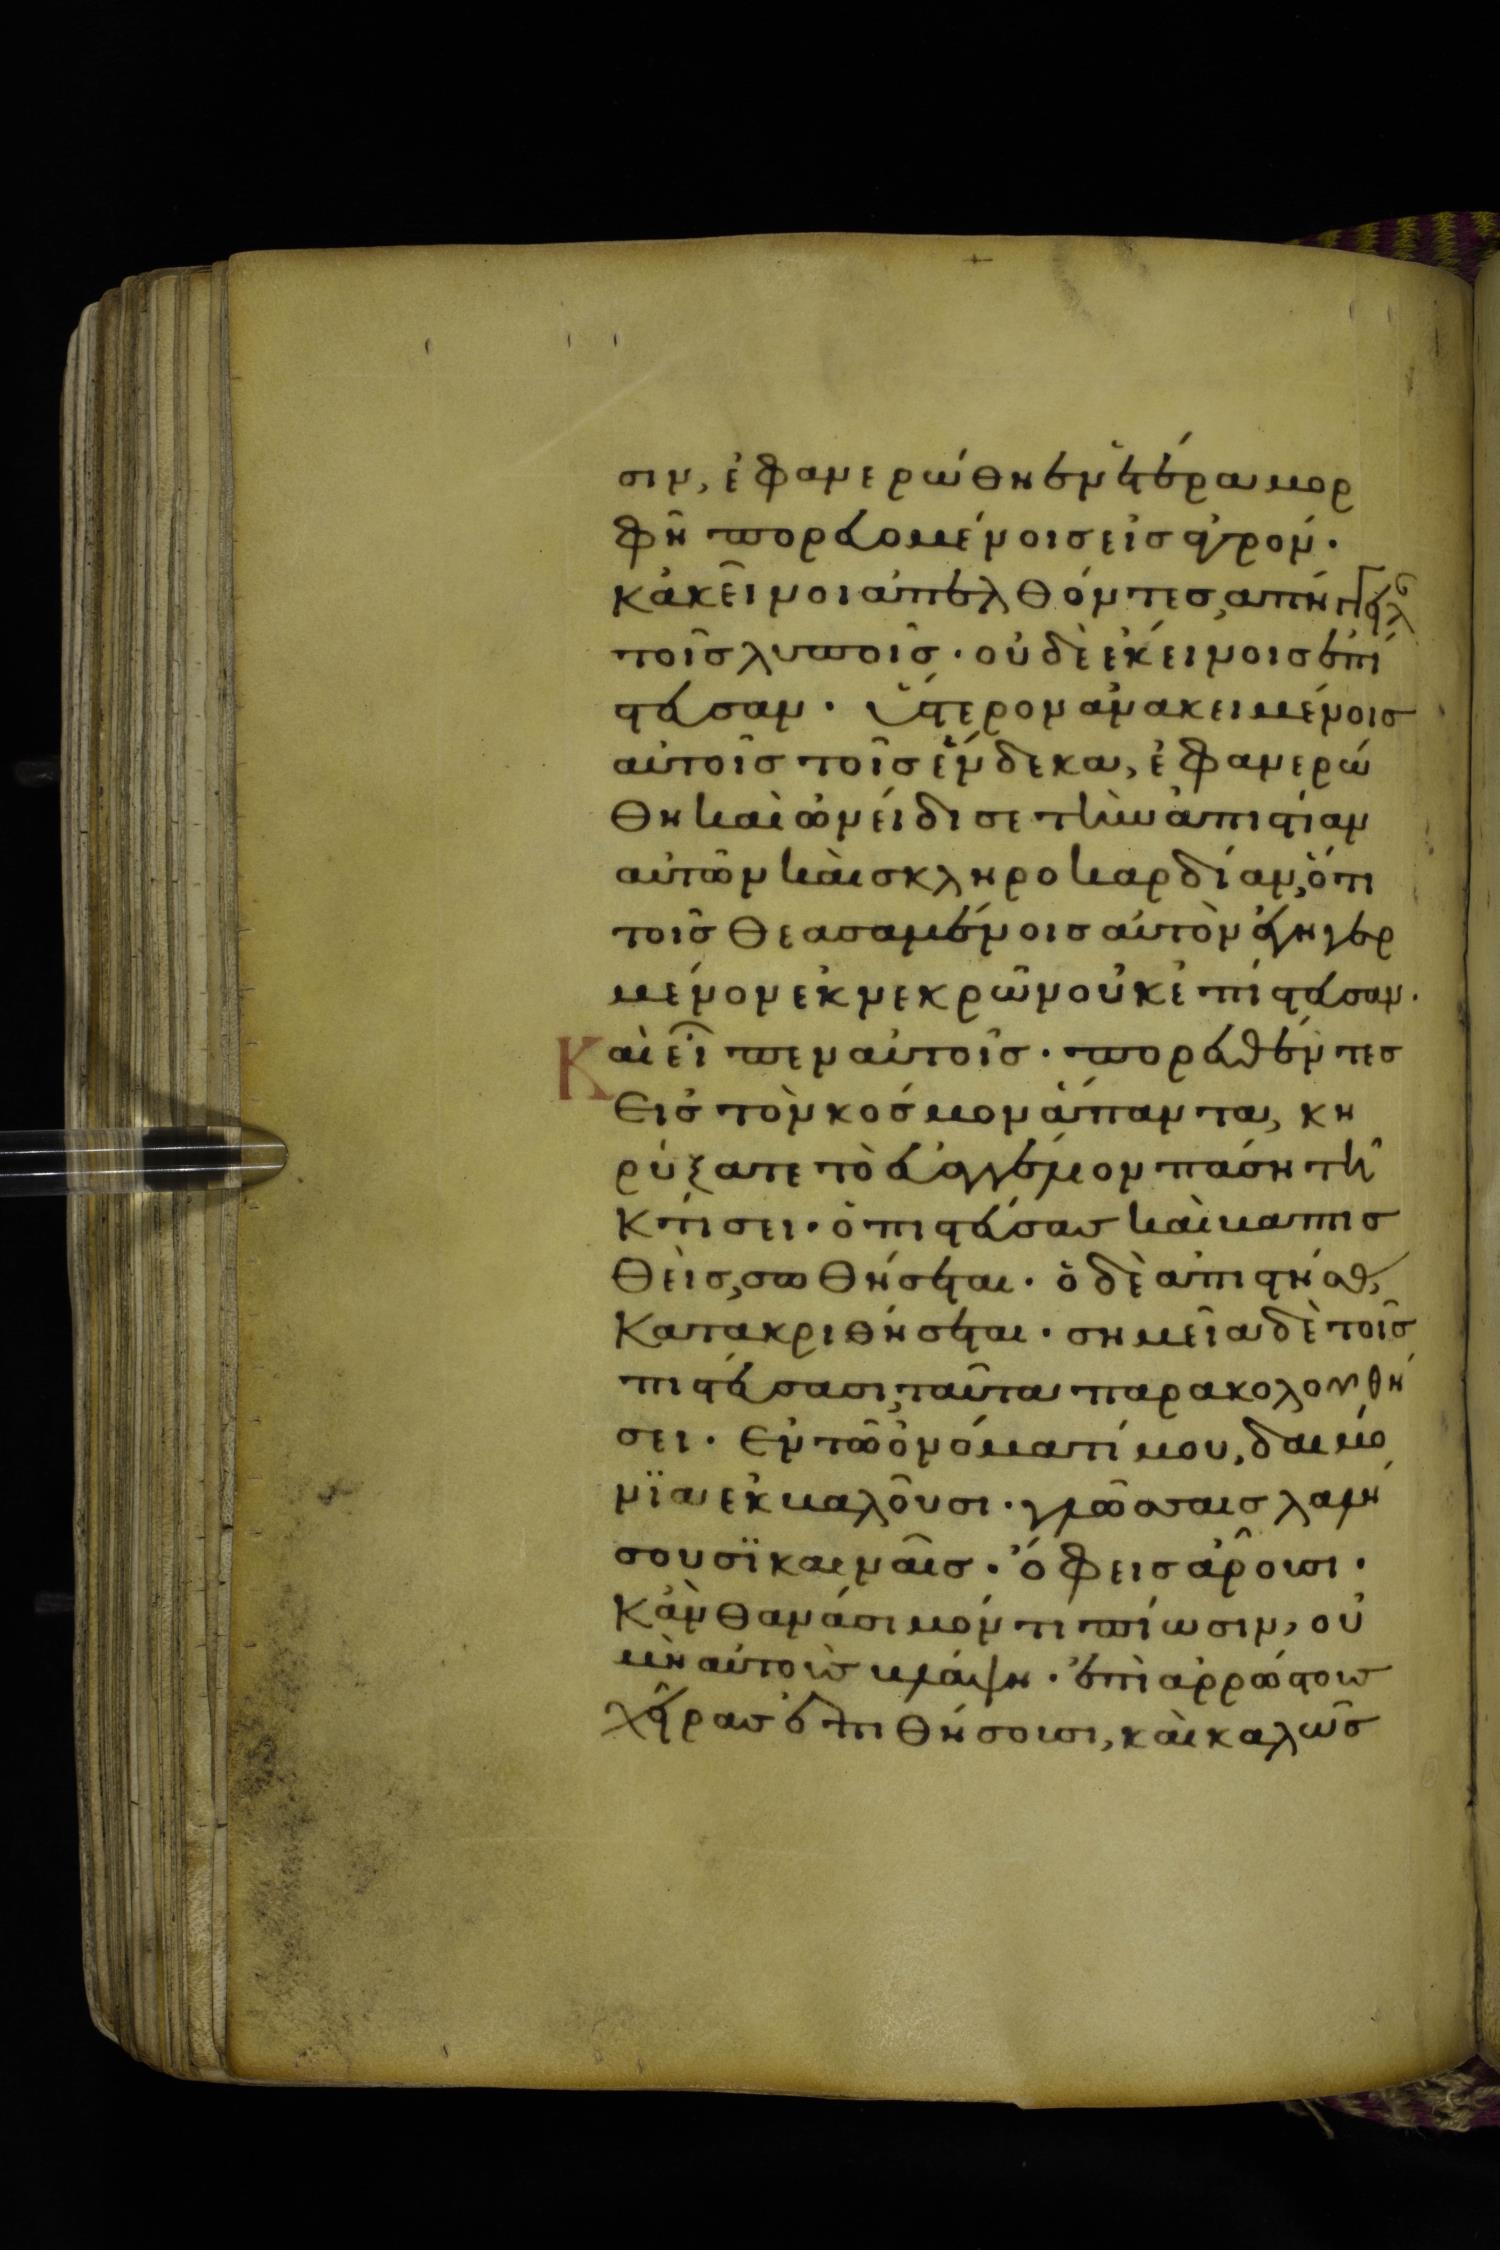 σιν, ἐφανερώθη ἐν ἑτέρα μορ
φῆ πορευομένοις εἰς ἀγρόν·
κἀκεῖνοι ἀπελθόντες, ἀπήγγειλ
τοῖς λυποῖς· οὐδὲ ἐκείνοις ἐπί
στευσαν· ὕστερον ἀνακειμένοις
αὐτοῖς τοῖς ἕνδεκα, ἐφανερώ
θη καὶ ὠνείδισε τὴν ἀπιστίαν
αὐτῶν καὶ σκληροκαρδίαν, ὅτι
τοῖς θεασαμένοις αὐτὸν ἐγηγερ
μένον ἐκ νεκρῶν οὐκ ἐπίστευσαν.
Καὶ εἶπεν αὐτοῖς· πορευθέντες
εἰς τὸν κόσμον ἅπαντα, κη
ρύξατε τὸ εὐαγγέλιον πάση τῆ
κτίσει· ὁ πιστεύσας καὶ βαπτισ
θεὶς, σωθήσεται· ὁ δὲ ἀπιστήσας,
κατακριθήσεται· σημεῖα δὲ τοῖς
πιστεύσασι, ταῦτα παρακολουθή
σει· ἐν τῶ ὀνόματί μου, δαιμό
νϊα ἐκβαλοῦσι· γλώσσαις λαλή
σουσϊ καιναῖς· ὄφεις ἀροῦσι·
κἂν θανάσιμόν τι πίωσιν, οὐ
μὴ αὐτοὺς βλάψη· ἐπὶ ἀρρώστους
χεῖρας ἐπιθήσουσι, καὶ καλῶς